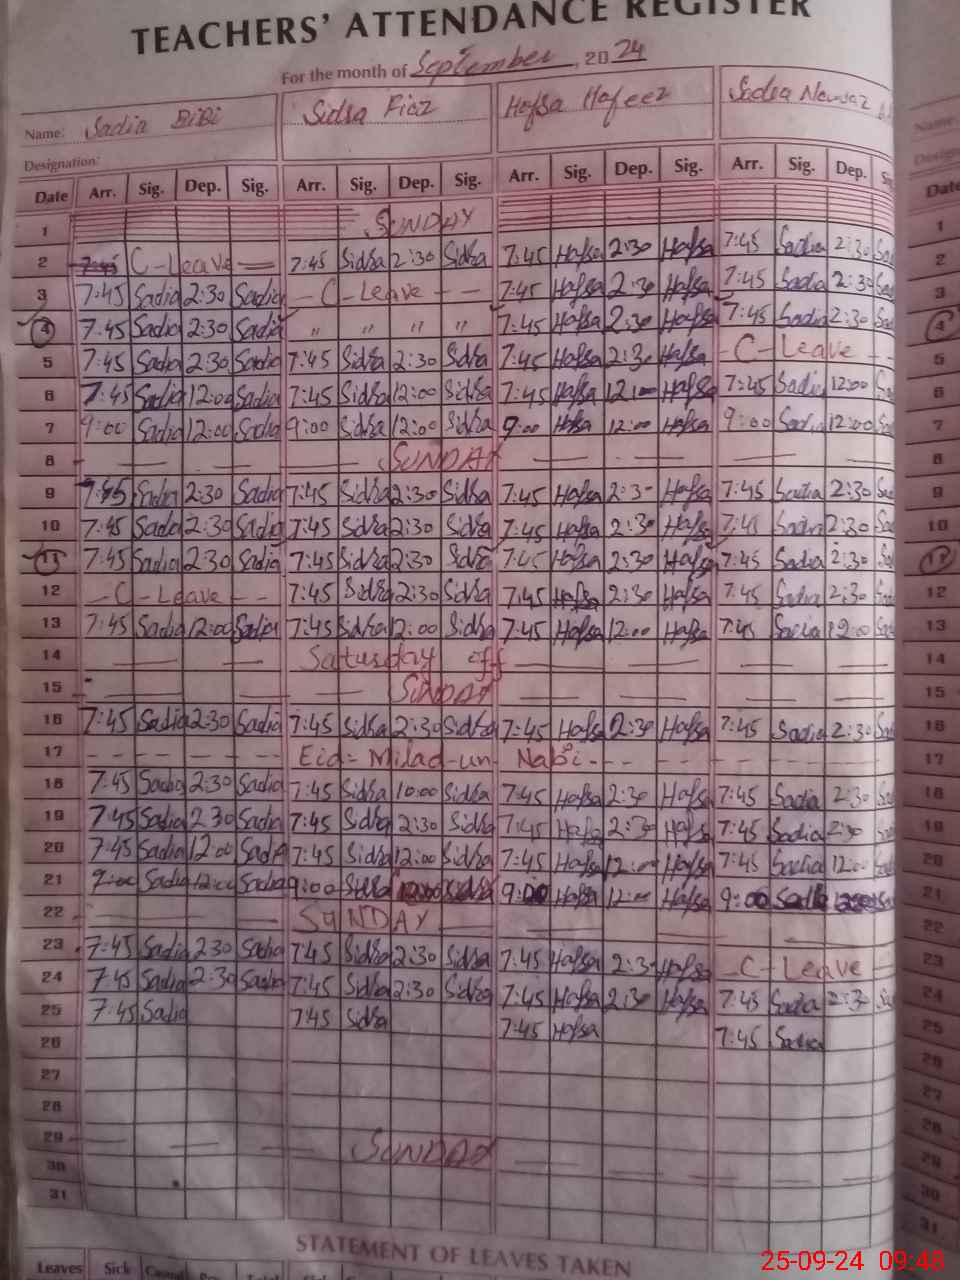 TEACHERS' ATTENDANCE REGISTER
For the month of September, 2024
Name: Sadia BiBi Sidra Fiaz Hafsa Hafeez Sadia Nawaz
Designation:
Date Arr. Sig. Dep. Sig. Arr. Sig. Dep. Sig. Arr. Sig. Dep. Sig. Arr. Sig. Dep.
1 SUNDAY 1
2 7:45 C-Leave 7:45 Sidra 2:30 Sidra 7:45 Hafsa 2:30 Hafsa 7:45 Sadia 2:30 2
3 7:45 Sadia 2:30 Sadia - C-Leave - - 7:45 Hafsa 2:30 Hafsa 7:45 Sadia 2:30 3
4 7:45 Sadia 2:30 Sadia " " " " 7:45 Hafsa 2:30 Hafsa 7:45 Sadia 2:30 4
5 7:45 Sadia 2:30 Sadia 7:45 Sidra 2:30 Sidra 7:45 Hafsa 2:30 Hafsa - C-Leave - - 5
6 7:45 Sadia 12:00 Sadia 7:45 Sidra 12:00 Sidra 7:45 Hafsa 12:00 Hafsa 7:45 Sadia 12:00 6
7 9:00 Sadia 12:00 Sadia 9:00 Sidra 12:00 Sidra 9:00 Hafsa 12:00 Hafsa 9:00 Sadia 12:00 7
8 SUNDAY 8
9 7:45 Sadia 2:30 Sadia 7:45 Sidra 2:30 Sidra 7:45 Hafsa 2:3- Hafsa 7:45 Sadia 2:30 9
10 7:45 Sadia 2:30 Sadia 7:45 Sidra 2:30 Sidra 7:45 Hafsa 2:30 Hafsa 7:45 Sadia 2:30 10
11 7:45 Sadia 2:30 Sadia 7:45 Sidra 2:30 Sidra 7:45 Hafsa 2:30 Hafsa 7:45 Sadia 2:30 11
12 - C-Leave - - 7:45 Sidra 2:30 Sidra 7:45 Hafsa 2:30 Hafsa 7:45 Sadia 2:30 12
13 7:45 Sadia 12:00 Sadia 7:45 Sidra 12:00 Sidra 7:45 Hafsa 12:00 Hafsa 7:45 Sadia 12:00 13
14 Saturday off 14
15 SUNDAY 15
16 7:45 Sadia 2:30 Sadia 7:45 Sidra 2:30 Sidra 7:45 Hafsa 2:30 Hafsa 7:45 Sadia 2:30 16
17 Eid-Milad-un-Nabi 17
18 7:45 Sadia 2:30 Sadia 7:45 Sidra 10:00 Sidra 7:45 Hafsa 2:30 Hafsa 7:45 Sadia 2:30 18
19 7:45 Sadia 2:30 Sadia 7:45 Sidra 2:30 Sidra 7:45 Hafsa 2:30 Hafsa 7:45 Sadia 2:30 19
20 7:45 Sadia 12:00 Sadia 7:45 Sidra 12:00 Sidra 7:45 Hafsa 12:00 Hafsa 7:45 Sadia 12:00 20
21 9:00 Sadia 12:00 Sadia 9:00 Sidra 12:00 Sidra 9:00 Hafsa 12:00 Hafsa 9:00 Sadia 12:00 21
22 SUNDAY 22
23 7:45 Sadia 2:30 Sadia 7:45 Sidra 2:30 Sidra 7:45 Hafsa 2:30 Hafsa - C-Leave 23
24 7:45 Sadia 2:30 Sadia 7:45 Sidra 2:30 Sidra 7:45 Hafsa 2:30 Hafsa 7:45 Sadia 2:30 24
25 7:45 Sadia 7:45 Sidra 7:45 Hafsa 7:45 Sadia 25
26 26
27 27
28 28
29 SUNDAY 29
30 30
31 31
STATEMENT OF LEAVES TAKEN
Leaves Sick
25-09-24 09:48